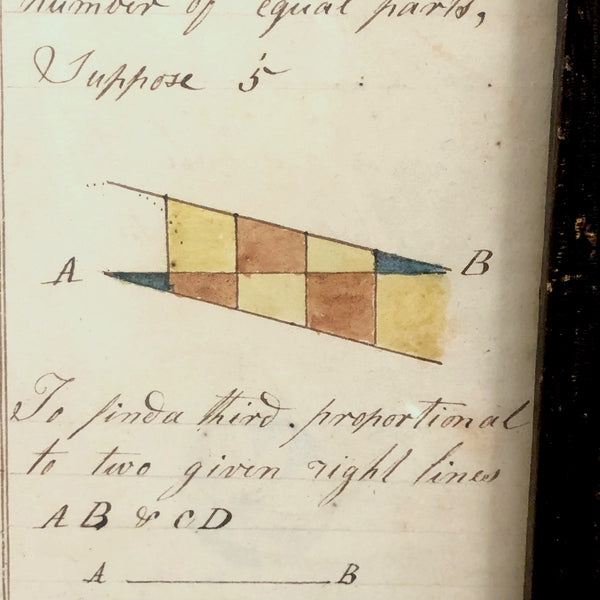 number of equal parts,
Suppose 5
A B
To find a third proportional
to two given right lines
AB & CD
A B